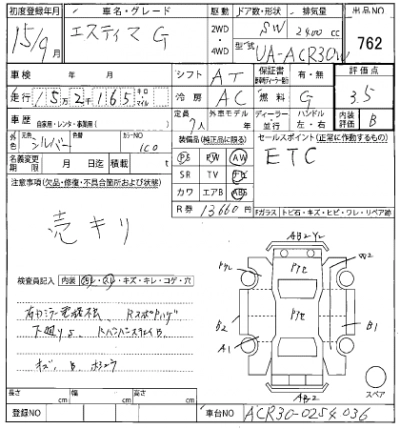 初度登録年月 車名・グレード 駆動 ドア数・形状 排気量 出品NO
15/9月 エスティマ G 2WD・4WD SW 2400cc 762
型式 UA-ACR30W
車検 年 月 シフト AT 保証書 有・無 評価点
走行 15万2千165 キロ マイル 冷房 AC 燃料 G 3.5
車歴 自家用・レンタ・事業用( ) 定員 7人 外車モデル 年 ディーラー・並行 ハンドル 左・右 内装評価 B
外色 元色 シルバー カラーNO 1C0 装備品(純正品に限る) セールスポイント(正常に作動するもの)
名義変更期限 月 日迄 積載量 t PS PW AW ETC
注意事項(欠品・修復・不具合箇所および状態) SR TV
カワ エアB ABS
売キリ R券 13660円
Fガラス トビ石・キズ・ヒビ・ワレ・リペア跡
検査員記入 内装 ヨゴレ・スレ・キズ・キレ・コゲ・穴
AB2 Y2
Pte
W2
Pte
B2
B1
A1
下廻り
キズ B
AB2
スペア
長さ cm 幅 cm 高さ cm
登録NO 車台NO ACR30-0254036